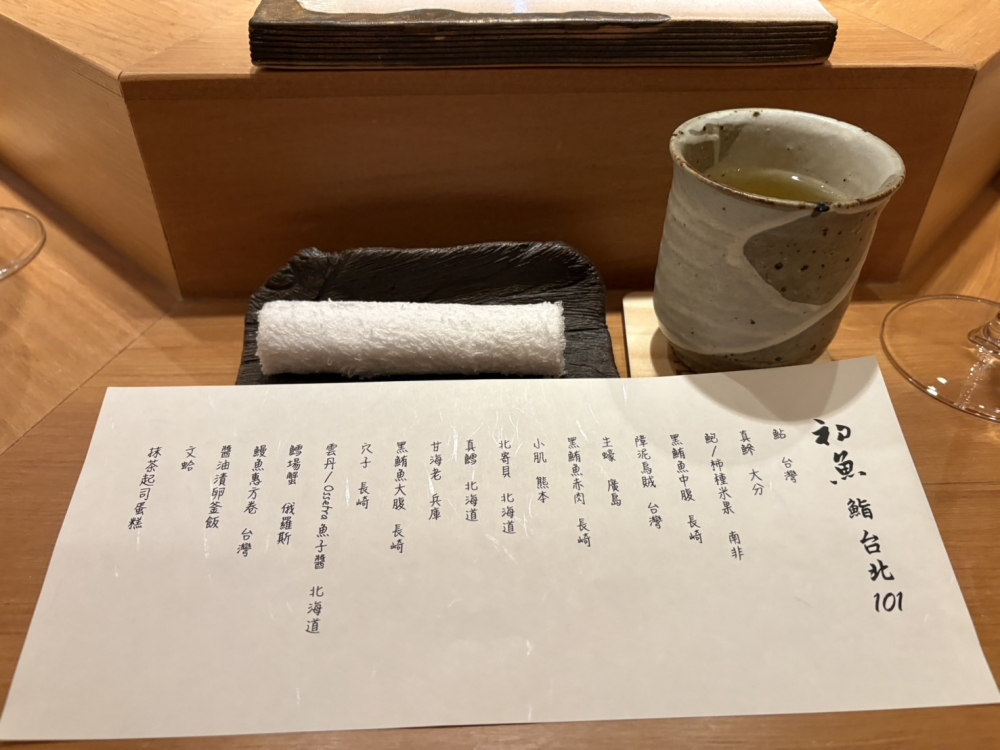 初魚 鮨 台北 101
鮎 台灣
真鰺 大分
鮑/柿種米果 南非
黑鮪魚中腹 長崎
障泥烏賊 台灣
生蠔 廣島
黑鮪魚赤肉 長崎
小肌 熊本
北寄貝 北海道
真鱈 北海道
甘海老 兵庫
黑鮪魚大腹 長崎
穴子 長崎
雲丹/Ossetra魚子醬 北海道
鱈場蟹 俄羅斯
鰻魚惠方卷 台灣
醬油漬卵釜飯
文蛤
抹茶起司蛋糕